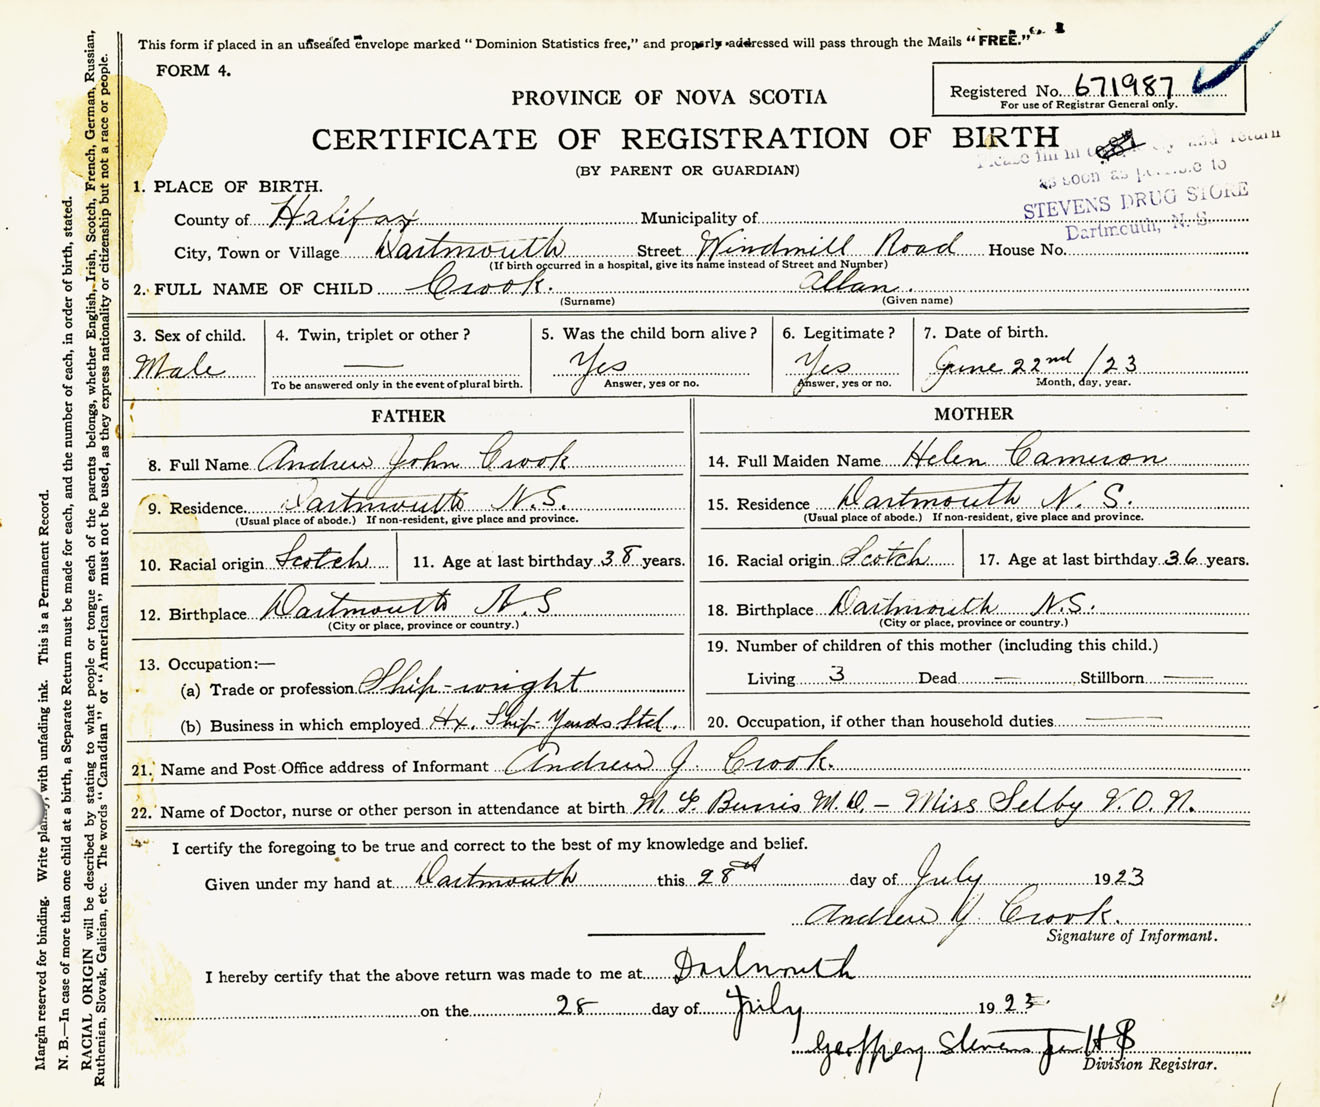 This form if placed in an unsealed envelope marked "Dominion Statistics free," and properly addressed will pass through the Mails "FREE."
FORM 4.
Registered No. 671987
For use of Registrar General only.
PROVINCE OF NOVA SCOTIA
CERTIFICATE OF REGISTRATION OF BIRTH
(BY PARENT OR GUARDIAN)
Please fill in and return
as soon as possible to
STEVENS DRUG STORE
Dartmouth, N. S.
1. PLACE OF BIRTH.
County of Halifax Municipality of
City, Town or Village Dartmouth Street Windmill Road House No.
(If birth occurred in a hospital, give its name instead of Street and Number)
2. FULL NAME OF CHILD Crook. Allan.
(Surname) (Given name)
3. Sex of child. 4. Twin, triplet or other? 5. Was the child born alive? 6. Legitimate? 7. Date of birth.
Male — Yes Yes June 22nd /23
To be answered only in the event of plural birth. Answer, yes or no. Answer, yes or no. Month, day, year.
FATHER MOTHER
8. Full Name Andrew John Crook 14. Full Maiden Name Helen Cameron
9. Residence Dartmouth N.S. 15. Residence Dartmouth N.S.
(Usual place of abode.) If non-resident, give place and province. (Usual place of abode.) If non-resident, give place and province.
10. Racial origin Scotch 11. Age at last birthday 38 years. 16. Racial origin Scotch 17. Age at last birthday 36 years.
12. Birthplace Dartmouth N.S 18. Birthplace Dartmouth N.S.
(City or place, province or country.) (City or place, province or country.)
19. Number of children of this mother (including this child.)
13. Occupation:—
(a) Trade or profession Ship-wright Living 3 Dead — Stillborn —
(b) Business in which employed Hx. Ship-Yards Ltd. 20. Occupation, if other than household duties —
21. Name and Post Office address of Informant Andrew J. Crook.
22. Name of Doctor, nurse or other person in attendance at birth M. G. Burris M.D. – Miss Selby V.O.N.
I certify the foregoing to be true and correct to the best of my knowledge and belief.
Given under my hand at Dartmouth this 28th day of July 1923
Andrew J Crook.
Signature of Informant.
I hereby certify that the above return was made to me at Dartmouth
on the 28 day of July 1923.
Geoffrey Stevens
Division Registrar.
Margin reserved for binding. Write plainly, with unfading ink. This is a Permanent Record.
N. B.—In case of more than one child at a birth, a Separate Return must be made for each, and the number of each, in order of birth, stated.
RACIAL ORIGIN will be described by stating to what people or tongue each of the parents belongs, whether English, Irish, Scotch, French, German, Russian,
Ruthenian, Slovak, Galician, etc. The words "Canadian" or "American" must not be used, as they express nationality or citizenship but not a race or people.